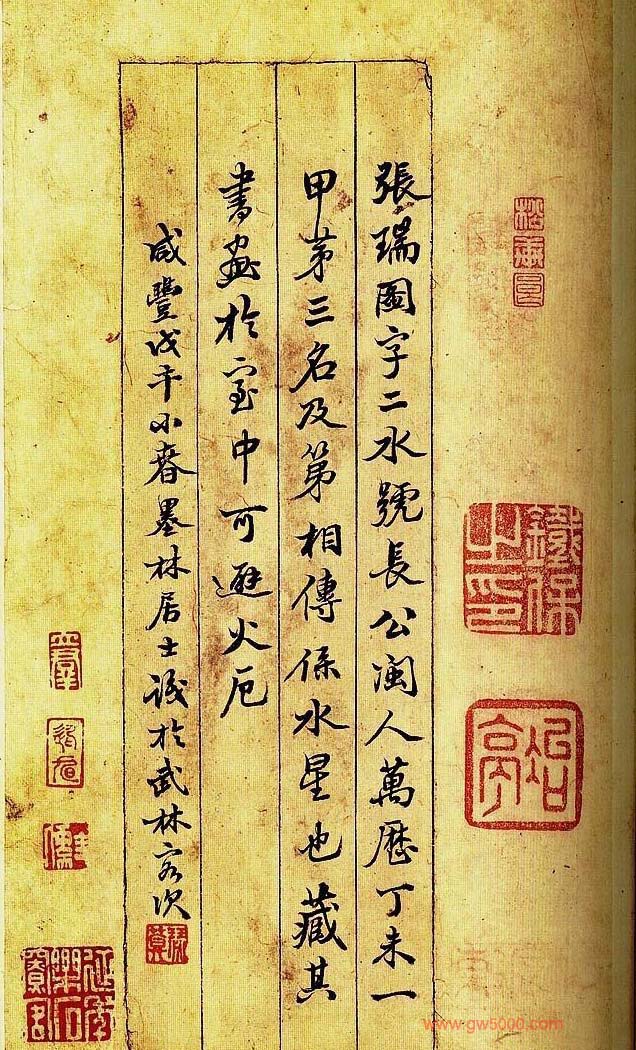 張瑞圖字二水號長公閩人萬歷丁未一
甲苐三名及第相傳係水星也藏其
書畫於室中可避火厄
咸豐戊午小春墨林居士識於武林客次
鐵保之印
www.gw5000.com